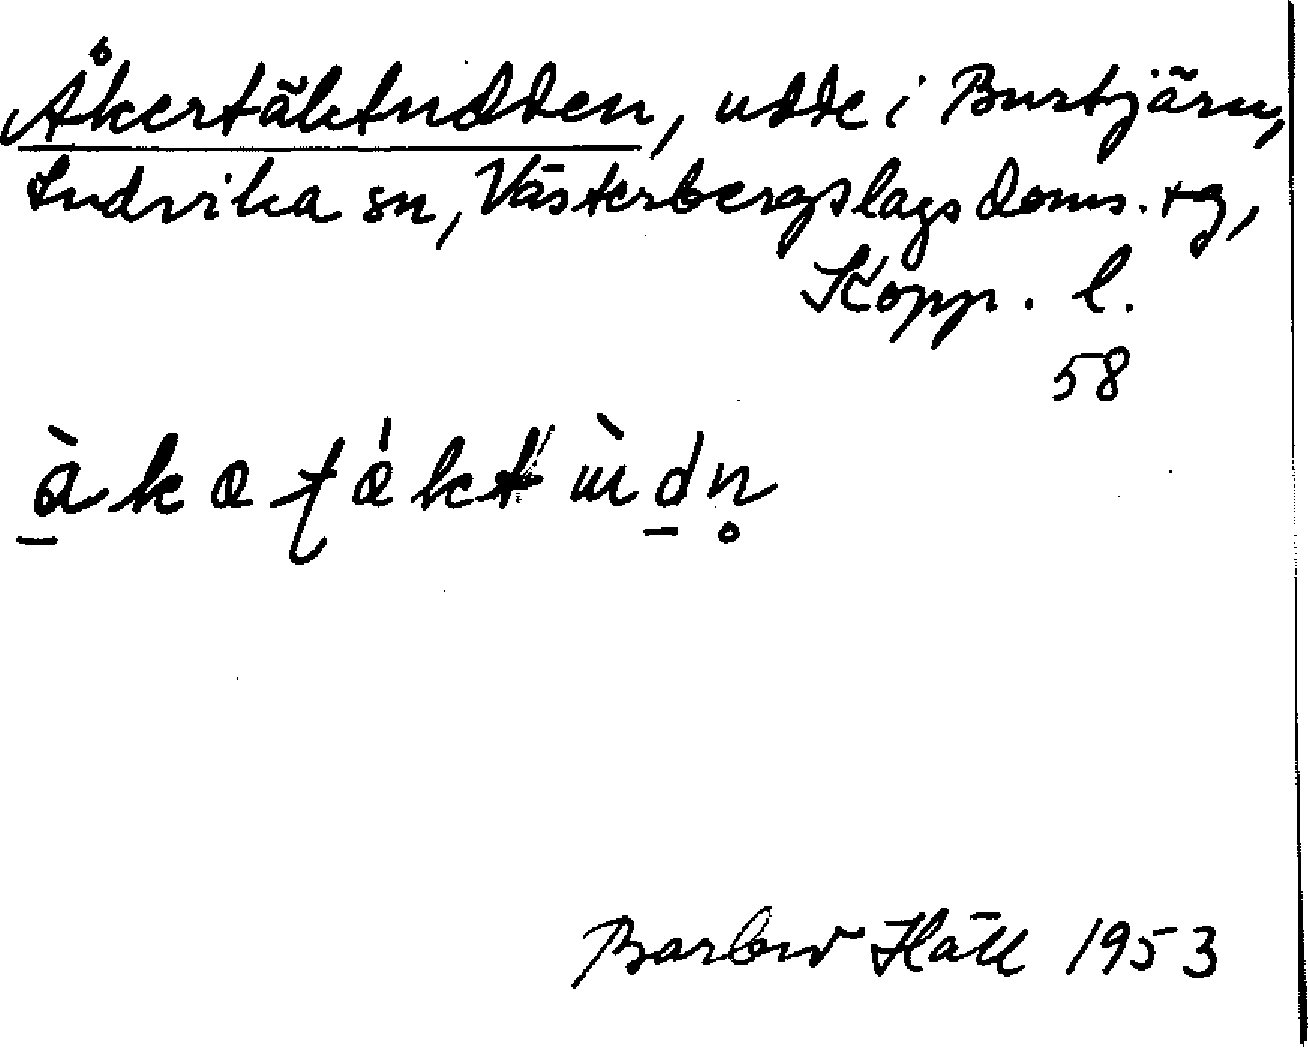 Åkertäktudden, udde i Burtjärn,
Ludvika sn, Västerbergslags doms. tg,
Kopp. l.
58
Barbro Häll 1953